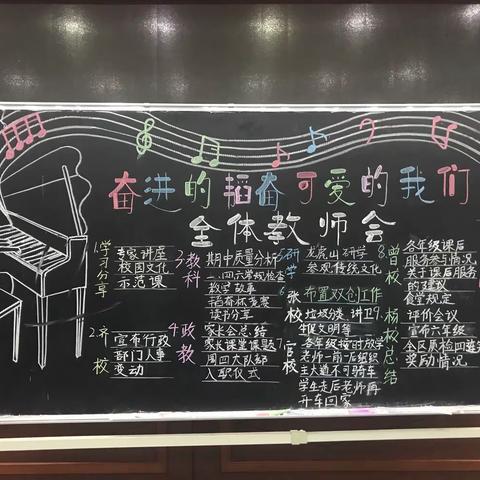 奋进的韬奋可爱的我们
全体教师会
1.学习分享
专家讲座
校园文化
示范课
2.齐校
宣布行政
部门人事
变动
3.教科
期中质量分析
二、四六常规检查
教学故事
韬奋杯竞赛
读书分享
4.政教
家长会总结
家长课堂课题
周四大队部
入职仪式
5.研学
龙虎山研学
参观传统文化
6.张校
布置双创工作
垃圾分类 讲卫生
文明等
各年级按时放学
老师一前一后组织
主大道不可骑车
学生走后老师再
开车回家
8.曾校
各年级课后
服务参与情况
关于课后服务
的建议
食堂规定
杨校总结
评价会议
宣布六年级
全区质检四连冠
奖励情况